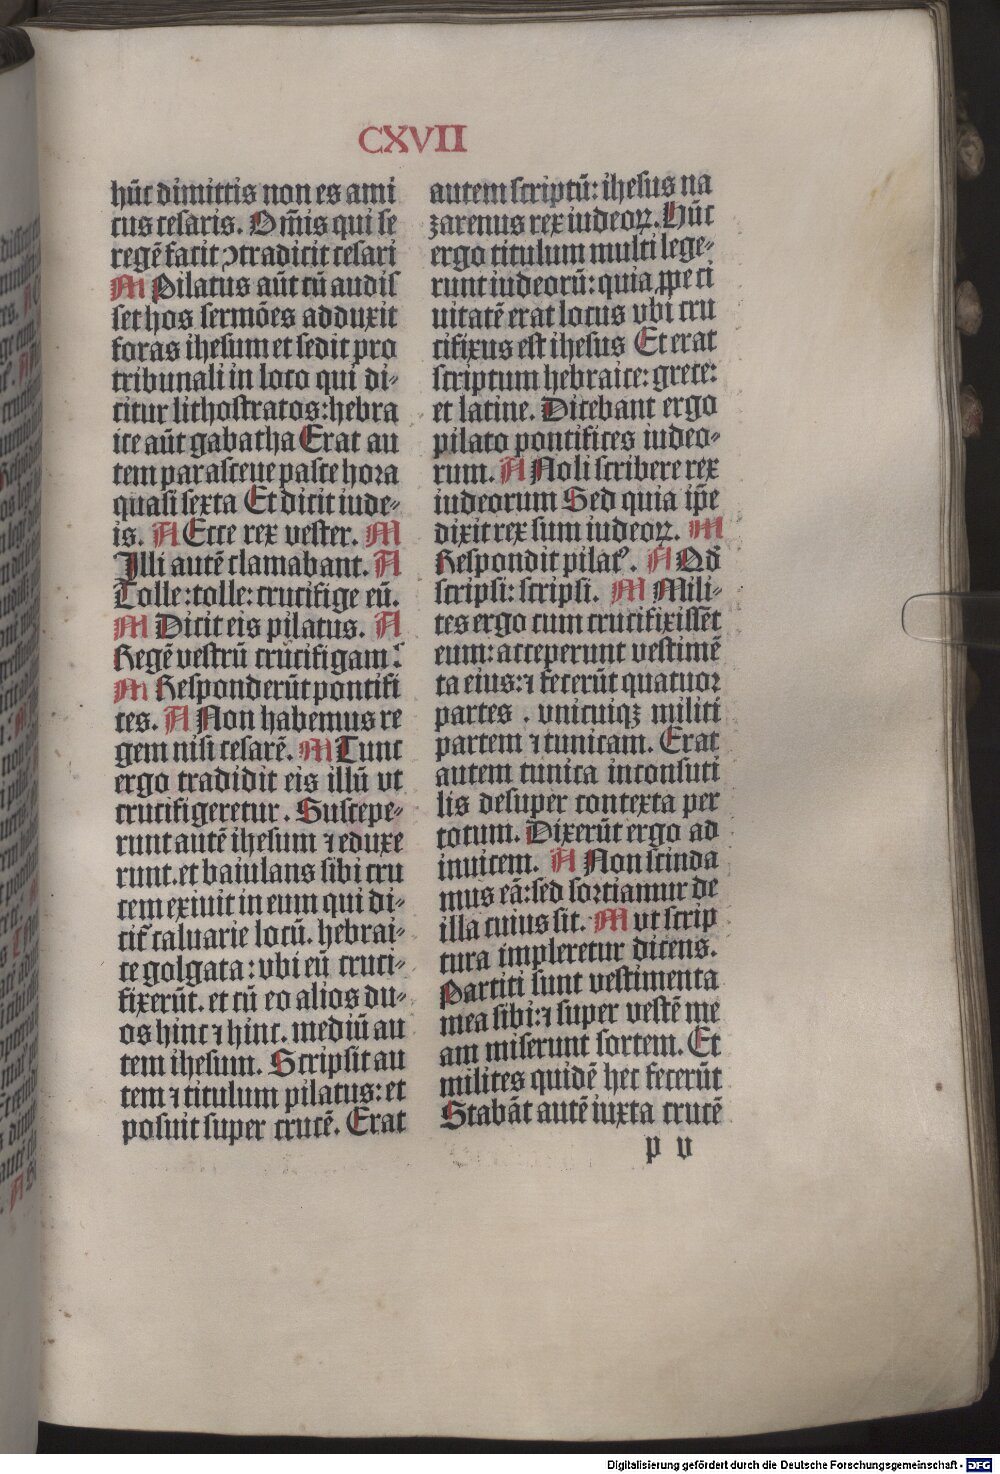 CXVII
hūc dimittis non es ami
cus cesaris. Om̄is qui se
regē facit ↄtradicit cesari
M Pilatus aūt cū audis
set hos sermōes adduxit
foras ihesum et sedit pro
tribunali in loco qui di⸗
citur lithostratos: hebra
ice aūt gabatha Erat au
tem parasceue pasce hora
quasi sexta Et dicit iude⸗
is. A Ecce rex vester. M
Illi autē clamabant. A
Tolle: tolle: crucifige eū.
M Dicit eis pilatus. A
Regē vestrū crucifigam?
M Responderūt pontifi
ces. A Non habemus re
gem nisi cesarē. M Tunc
ergo tradidit eis illū vt
crucifigeretur. Suscepe⸗
runt autē ihesum ⁊ eduxe
runt. et baiulans sibi cru
cem exiuit in eum qui di⸗
cit̄ caluarie locū. hebrai⸗
ce golgata: vbi eū cruci⸗
fixerūt. et cū eo alios du⸗
os hinc ⁊ hinc. mediū au
tem ihesum. Scripsit au
tem ⁊ titulum pilatus: et
posuit super crucē. Erat
autem scriptū: ihesus na
zarenus rex iudeoꝝ. Hūc
ergo titulum multi lege⸗
runt iudeorū: quia ꝓpe ci
uitatē erat locus vbi cru
cifixus est ihesus Et erat
scriptum hebraice: grece:
et latine. Dicebant ergo
pilato pontifices iudeo⸗
rum. A Noli scribere rex
iudeorum Sed quia ip̄e
dixit rex sum iudeoꝝ. M
Respondit pilatꝰ. A Qd̄
scripsi: scripsi. M Mili⸗
tes ergo cum crucifixissēt
eum: acceperunt vestimē
ta eius: ⁊ fecerūt quatuor
partes . vnicuiqꝫ militi
partem ⁊ tunicam. Erat
autem tunica inconsuti
lis desuper contexta per
totum. Dixerūt ergo ad
inuicem. A Non scinda
mus eā: sed sortiamur de
illa cuius sit. M vt scrip
tura impleretur dicens.
Partiti sunt vestimenta
mea sibi: ⁊ super vestē me
am miserunt sortem. Et
milites quidē hec fecerūt
Stabāt autē iuxta crucē
p v
Digitalisierung gefördert durch die Deutsche Forschungsgemeinschaft - DFG